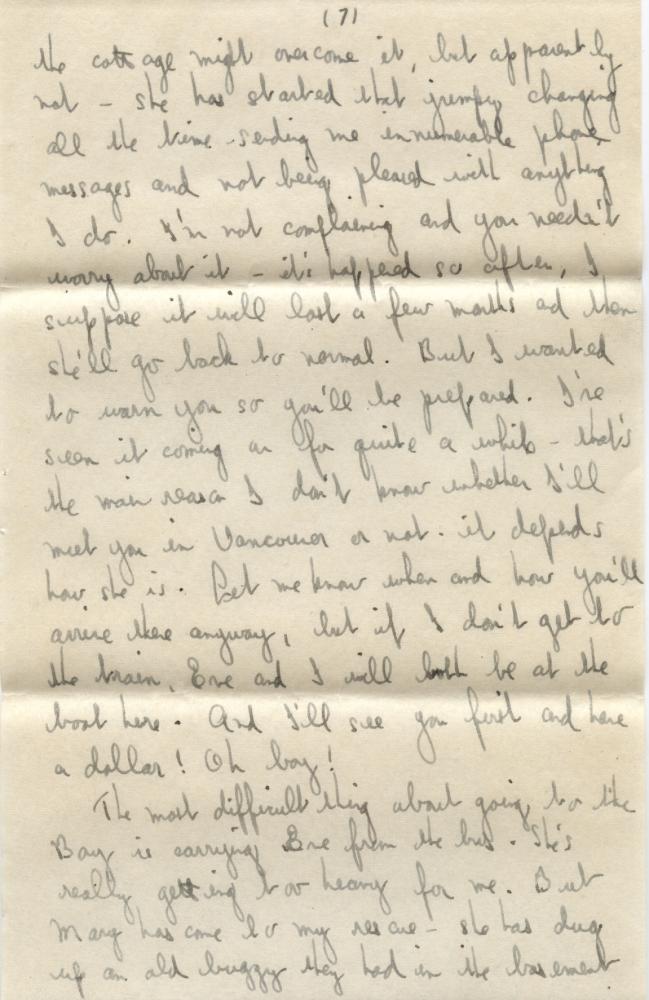 (7)
the cottage might overcome it, but apparently
not - she has started that grumpy changing
all the time - sending me innumerable phone
messages and not being pleased with anything
I do. I'm not complaining and you needn't
worry about it - it's happened so often, I
suppose it will last a few months and then
she'll go back to normal. But I wanted
to warn you so you'll be prepared. I've
seen it coming on for quite a while - that's
the main reason I don't know whether I'll
meet you in Vancouver or not. it depends
how she is. Let me know when and how you'll
arrive there anyway, but if I don't get to
the train, Eve and I will both be at the
boat here. And I'll see you first and have
a dollar! Oh boy!
The most difficult thing about going to the
Bay is carrying Eve from the bus. She's
really getting too heavy for me. But
Marg has come to my rescue - she has dug
up an old buggy they had in the basement